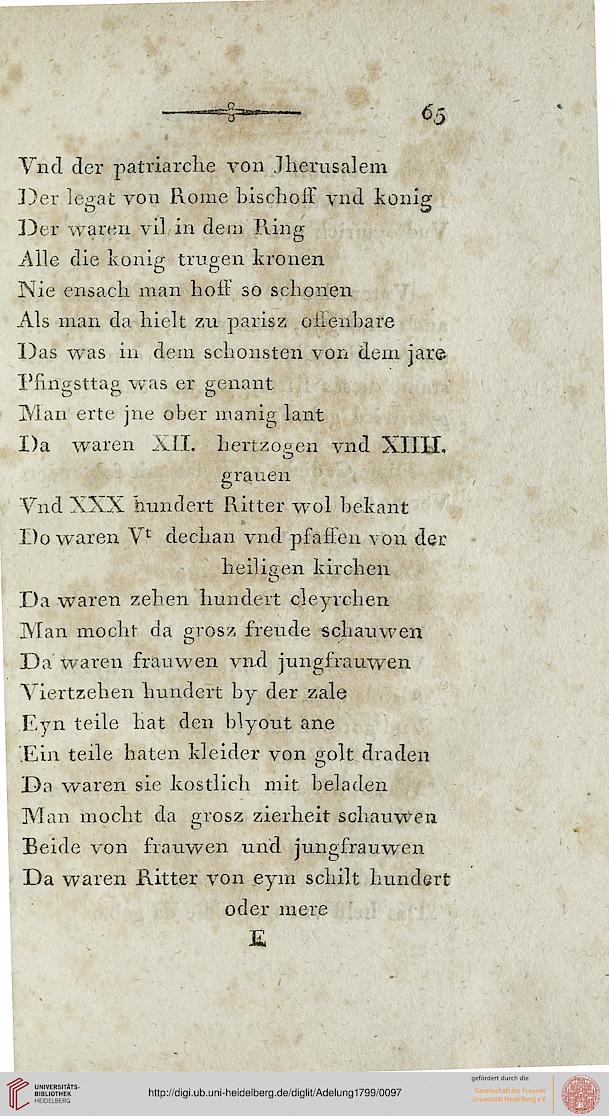 65
Vnd der patriarche von Jherusalem
Der legat von Rome bischoff vnd konig
Der waren vil in dem Ring
Alle die konig trugen kronen
Nie ensach man hoff so schonen
Als man da hielt zu parisz offenbare
Das was in dem schonsten von dem jare
Pfingsttag was er genant
Man erte jne ober manig lant
Da waren XII. hertzogen vnd XIIII.
grauen
Vnd XXX hundert Ritter wol bekant
Do waren Vt dechan vnd pfaffen von der
heiligen kirchen
Da waren zehen hundert cleyrchen
Man mocht da grosz freude schauwen
Da waren frauwen vnd jungfrauwen
Viertzehen hundert by der zale
Eyn teile hat den blyout ane
Ein teile haten kleider von golt draden
Da waren sie kostlich mit beladen
Man mocht da grosz zierheit schauwen
Beide von frauwen und jungfrauwen
Da waren Ritter von eym schilt hundert
oder mere
E
UNIVERSITÄTS-
BIBLIOTHEK
HEIDELBERG
http://digi.ub.uni-heidelberg.de/diglit/Adelung1799/0097
gefördert durch die
Gesellschaft der Freunde
Universität Heidelberg e.V.